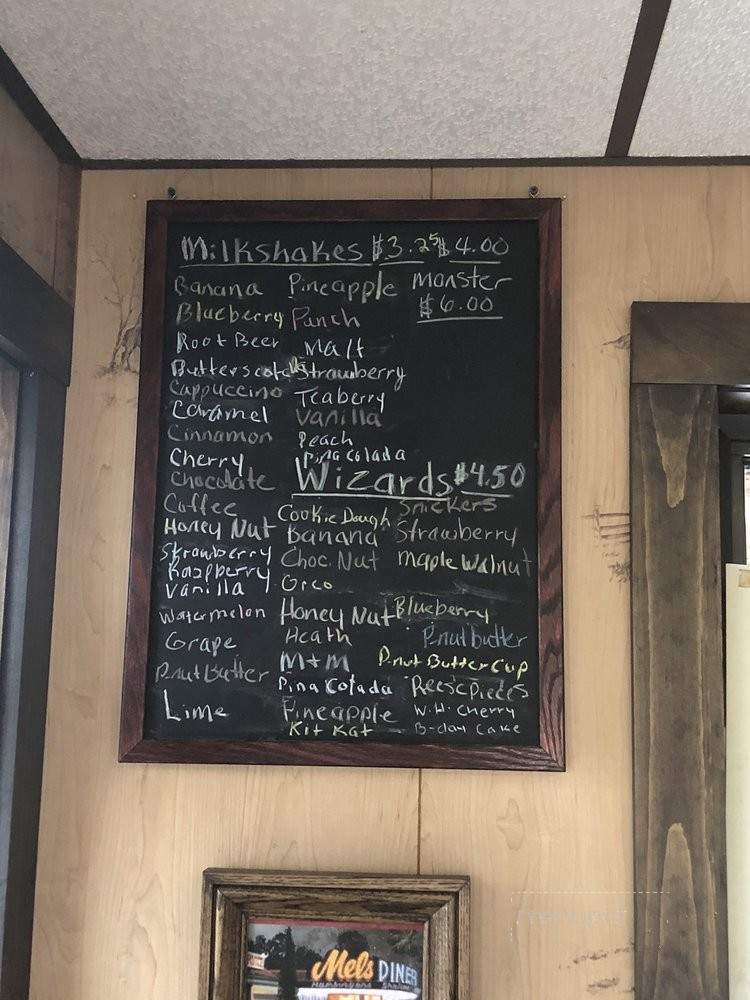 Milkshakes $3.25 $4.00
monster
$6.00
Banana
Blueberry
Root Beer
Butterscotch
Cappuccino
Caramel
Cinnamon
Cherry
Chocolate
Coffee
Honey Nut
Strawberry
Raspberry
Vanilla
Watermelon
Grape
P.nut Butter
Lime
Pineapple
Punch
Malt
Strawberry
Teaberry
Vanilla
Peach
Pina Colada
Wizards $4.50
Cookie Dough
Banana
Choc. Nut
Oreo
Honey Nut
Heath
M+M
Pina Colada
Pineapple
Kit Kat
Snickers
Strawberry
Maple Walnut
Blueberry
P.nut butter
P.nut Butter Cup
Reese Pieces
W.H. Cherry
B-day Cake
Mels DINER